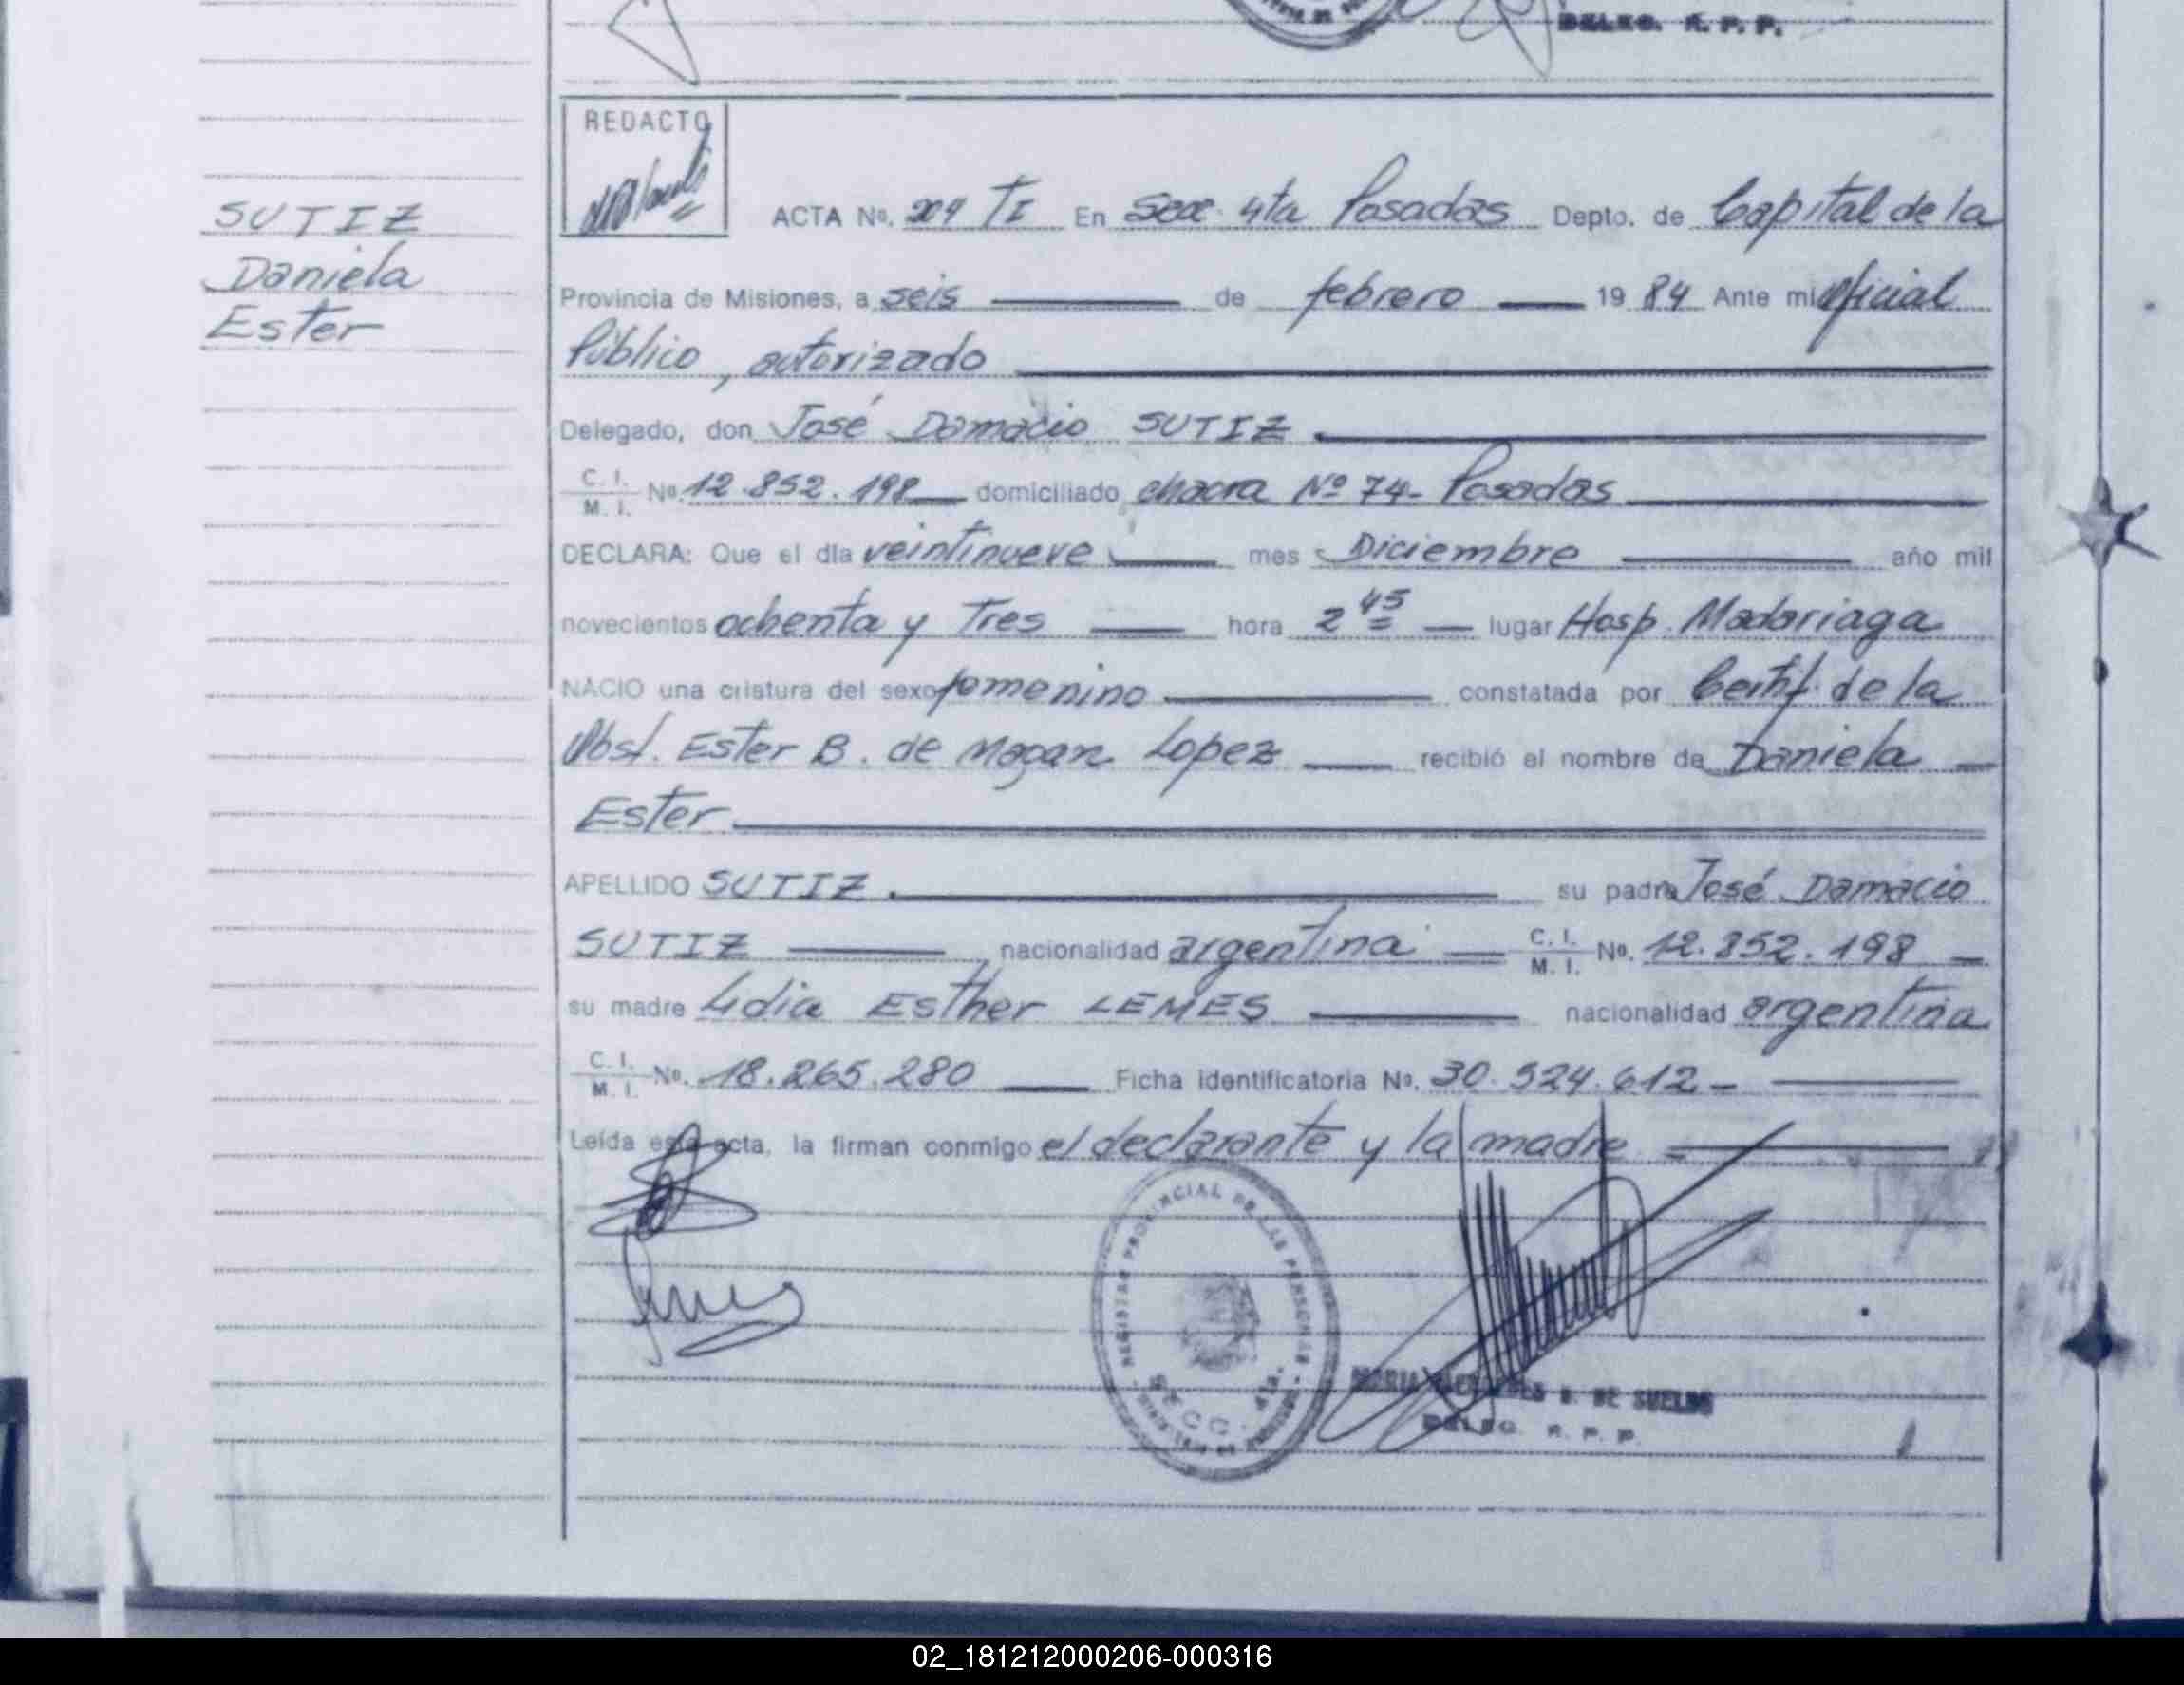 DELEG. R. P. P.
REDACTO
SUTIZ
Daniela
Ester
ACTA No. 209 TI En Secc. 4ta Posadas Depto. de Capital de la
Provincia de Misiones, a seis de febrero 19 84 Ante mi oficial
Público, autorizado
Delegado, don José Damacio SUTIZ
C. I. M. I. No. 12.852.198 domiciliado chacra Nº 74- Posadas
DECLARA: Que el día veintinueve mes Diciembre año mil
novecientos ochenta y Tres hora 2 45 lugar Hosp. Madariaga
NACIO una criatura del sexo femenino constatada por Certif. de la
Obst. Ester B. de Lopez recibió el nombre de Daniela
Ester
APELLIDO SUTIZ. su padre José Damacio
SUTIZ nacionalidad argentina C. I. M. I. No. 12.852.198
su madre Lidia Esther LEMES nacionalidad argentina
C. I. M. I. No. 18.265.280 Ficha identificatoria No. 30.524.612-
Leída esta acta, la firman conmigo el declarante y la madre
REGISTRO PROVINCIAL DE LAS PERSONAS
SECC. 4ta.
DE SUELDO
DELEG. R. P. P.
02_181212000206-000316